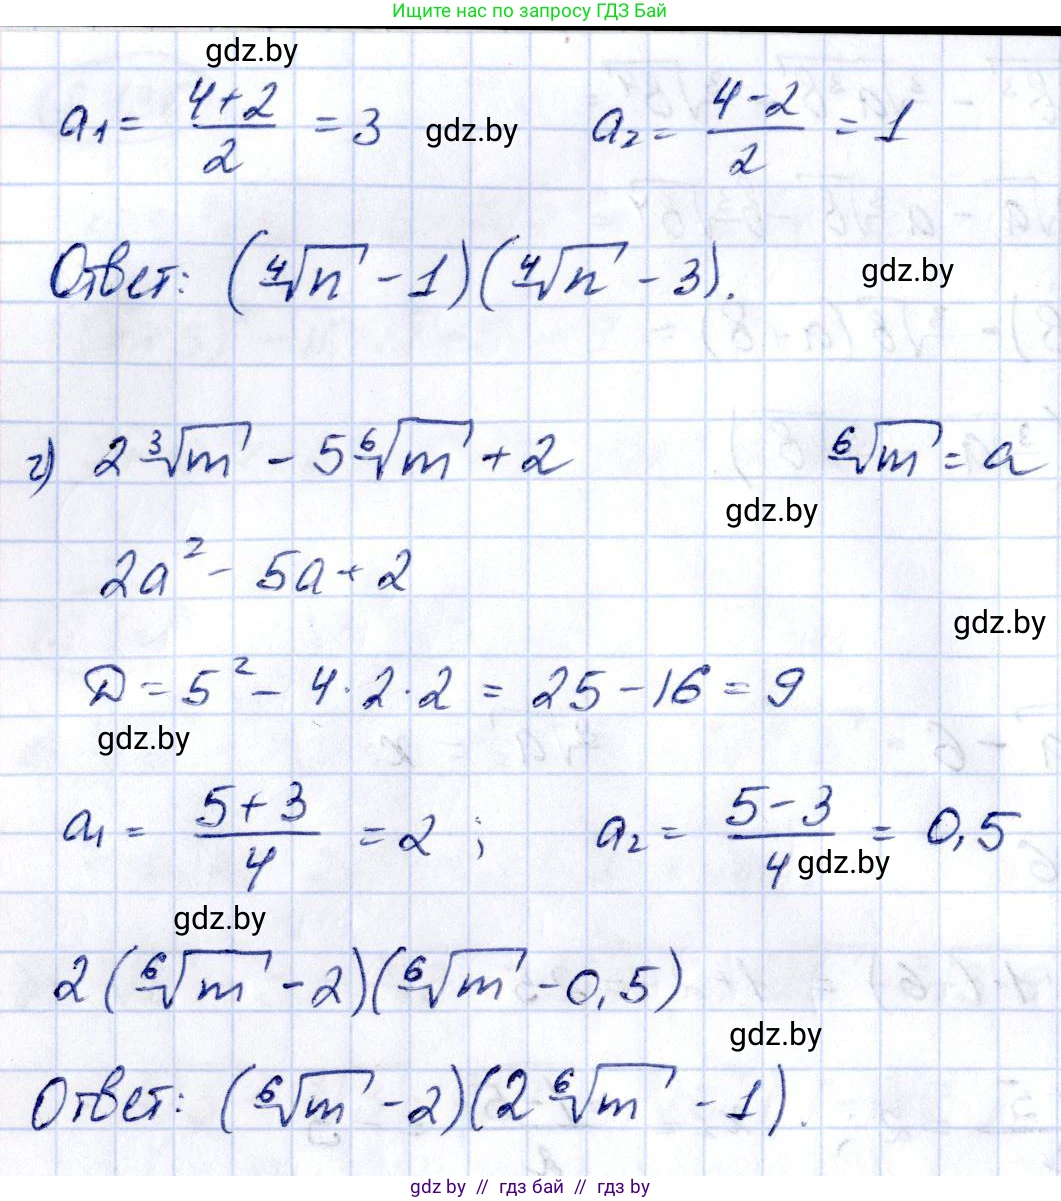 Ищите нас по запросу ГДЗ Бай
gdz.by
a₁ = (4+2)/2 = 3 gdz.by a₂ = (4-2)/2 = 1
Ответ: (⁴√n - 1)(⁴√n - 3). gdz.by
г) 2 ³√m - 5 ⁶√m + 2 ⁶√m = a
gdz.by
2a² - 5a + 2
gdz.by
D = 5² - 4·2·2 = 25 - 16 = 9
gdz.by
a₁ = (5+3)/4 = 2 ; a₂ = (5-3)/4 = 0,5
gdz.by
gdz.by
2(⁶√m - 2)(⁶√m - 0,5)
gdz.by
Ответ: (⁶√m - 2)(2 ⁶√m - 1).
gdz by // гдз бай // gdz by